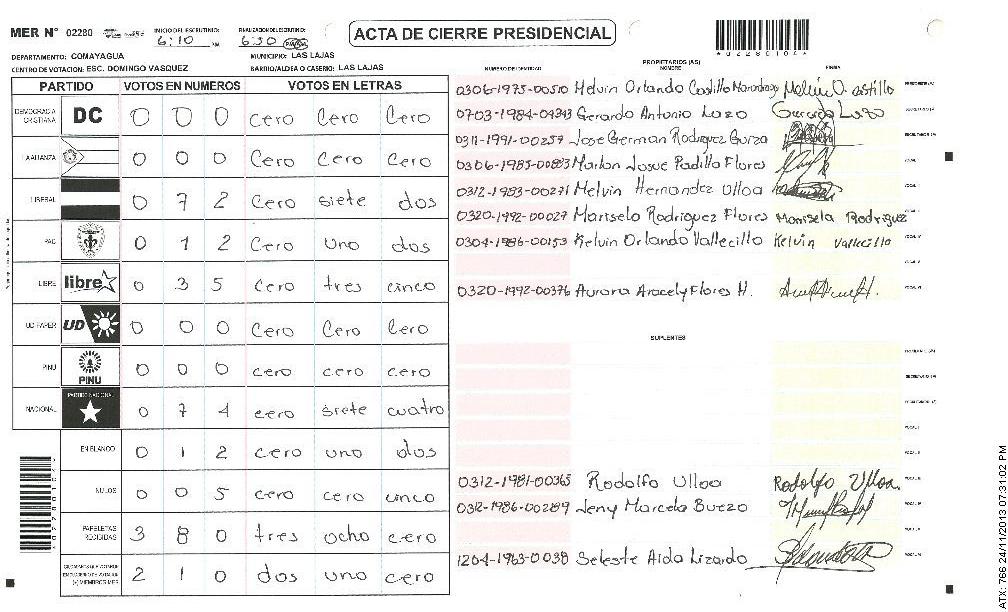 MER N° 02280 INICIO DEL ESCRUTINIO: 6:10 PM FINALIZACION ESCRUTINIO: 6:30 ACTA DE CIERRE PRESIDENCIAL
DEPARTAMENTO: COMAYAGUA MUNICIPIO: LAS LAJAS
CENTRO DE VOTACION: ESC. DOMINGO VASQUEZ BARRIO/ALDEA O CASERIO: LAS LAJAS
PARTIDO VOTOS EN NUMEROS VOTOS EN LETRAS
DEMOCRACIA CRISTIANA DC 0 0 0 Cero Cero Cero
LA ALIANZA 0 0 0 Cero Cero Cero
LIBERAL 0 7 2 Cero siete dos
PAC 0 1 2 Cero uno dos
LIBRE libre 0 3 5 Cero tres cinco
UD FAPER UD 0 0 0 Cero Cero Cero
PINU PINU 0 0 0 cero cero cero
NACIONAL PARTIDO NACIONAL 0 7 4 cero siete cuatro
EN BLANCO 0 1 2 cero uno dos
NULOS 0 0 5 cero cero cinco
PAPELETAS RECIBIDAS 3 8 0 tres ocho cero
2 1 0 dos uno cero
NUMERO DE IDENTIDAD PROPIETARIOS (AS) NOMBRE FIRMA
0306-1975-00510 Melvin Orlando Castillo
0703-1984-04343 Gerardo Antonio Lazo Gerardo Lazo
0311-1991-00257 Jose German Rodriguez
0306-1985-00883 Marlon Josue Padilla Flores
0312-1983-00271 Melvin Hernandez Ulloa
0320-1992-00027 Marisela Rodriguez Flores Marisela Rodriguez
0304-1986-00153 Kelvin Orlando Vallecillo Kelvin Vallecillo
0320-1992-00376 Aurora Aracely Flores H.
SUPLENTES
0312-1981-00365 Rodolfo Ulloa Rodolfo Ulloa
0312-1986-00289 Jeny Marcela Buezo
1204-1963-0038 Seleste Aida Lizardo
*02280104*
ATX: 766 24/11/2013 07:31:02 PM